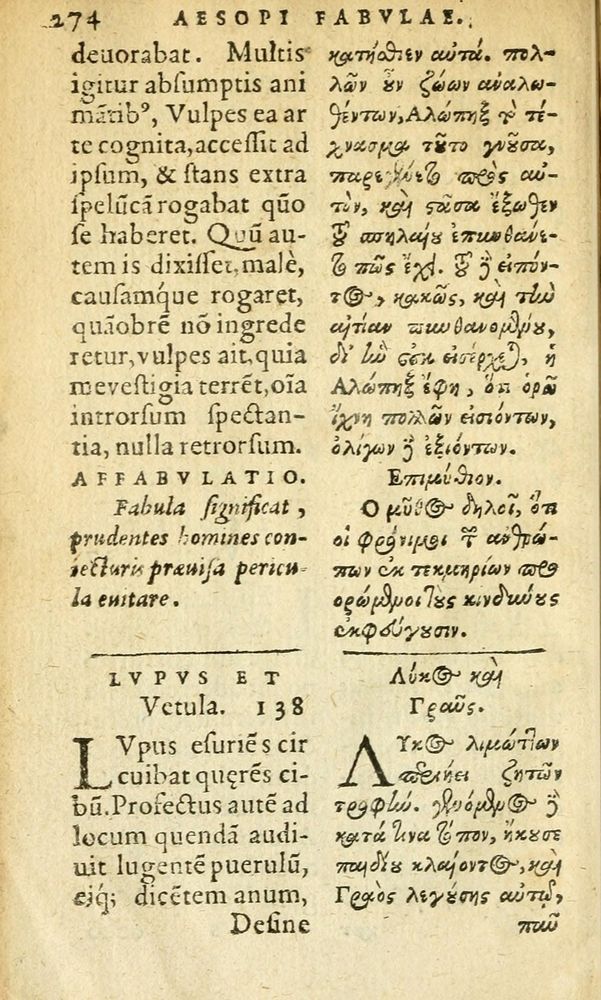 274 AESOPI FABVLAE.
deuorabat. Multis
igitur abſumptis ani
mātibꝰ, Vulpes ea ar
te cognita, acceſſit ad
ipſum, & ſtans extra
ſpelūcā rogabat quō
ſe haberet. Quū au-
tem is dixiſſet, malè,
cauſamq́ue rogaret,
quāobrē nō ingrede
retur, vulpes ait, quia
me veſtigia terrēt, oīa
introrſum ſpectan-
tia, nulla retrorſum.
AFFABVLATIO.
Fabula ſignificat,
prudentes homines con-
iecturis præuiſa pericu-
la euitare.
κατήσθιεν αὐτά. πολ-
λῶν οὖν ζώων ἀναλω-
θέντων, Ἀλώπηξ τὸ τέ-
χνασμα τοῦτο γνοῦσα,
παρεγένετο πρὸς αὐ-
τὸν, καὶ στᾶσα ἔξωθεν
τοῦ σπηλαίου ἐπυνθάνε-
το πῶς ἔχει. τοῦ δὲ εἰπόν-
τος, κακῶς, καὶ τὴν
αἰτίαν πυνθανομένου,
δι' ἣν οὐκ εἰσέρχεται, ἡ
Ἀλώπηξ ἔφη, ὅτι ὁρῶ
ἴχνη πολλῶν εἰσιόντων,
ὀλίγων δὲ ἐξιόντων.
Ἐπιμύθιον.
Ο μῦθος δηλοῖ, ὅτι
οἱ φρόνιμοι τῶν ἀνθρώ-
πων ἐκ τεκμηρίων προ
ορώμενοι τοὺς κινδύνους
ἐκφεύγουσιν.
LVPVS ET
Vetula. 138
LVpus eſuriēs cir
cuibat quęrēs ci-
bū. Profectus autē ad
locum quendā audi-
uit lugentē puerulū,
eiq́; dicētem anum,
Deſine
Λύκος καὶ
Γραῦς.
ΛΥκος λιμώττων
περιῄει ζητῶν
τροφήν. γενόμενος δὲ
κατά τινα τόπον, ἤκουσε
παιδίου κλαίοντος, καὶ
Γραὸς λεγούσης αὐτῷ,
παῦ